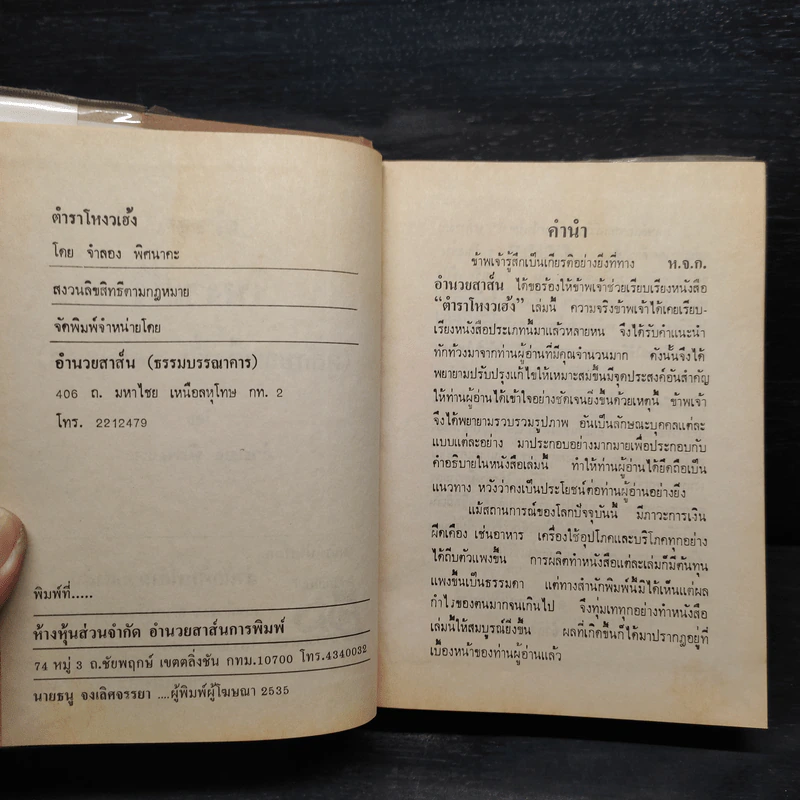 ตำราโหงวเฮ้ง
โดย จำลอง พิศนาคะ
สงวนลิขสิทธิ์ตามกฎหมาย
จัดพิมพ์จำหน่ายโดย
อำนวยสาส์น (ธรรมบรรณาคาร)
406 ถ. มหาไชย เหนือลหุโทษ กท. 2
โทร. 2212479
พิมพ์ที่.....
ห้างหุ้นส่วนจำกัด อำนวยสาส์นการพิมพ์
74 หมู่ 3 ถ.ชัยพฤกษ์ เขตตลิ่งชัน กทม.10700 โทร.4340032
นายธนู จงเลิศจรรยา ....ผู้พิมพ์ผู้โฆษณา 2535
คำนำ
ข้าพเจ้ารู้สึกเป็นเกียรติอย่างยิ่งที่ทาง ห.จ.ก.
อำนวยสาส์น ได้ขอร้องให้ข้าพเจ้าช่วยเรียบเรียงหนังสือ
“ตำราโหงวเฮ้ง” เล่มนี้ ความจริงข้าพเจ้าได้เคยเรียบ-
เรียงหนังสือประเภทนี้มาแล้วหลายหน จึงได้รับคำแนะนำ
ทักท้วงมาจากท่านผู้อ่านที่มีคุณจำนวนมาก ดังนั้นจึงได้
พยายามปรับปรุงแก้ไขให้เหมาะสมขึ้นมีจุดประสงค์อันสำคัญ
ให้ท่านผู้อ่านได้เข้าใจอย่างชัดเจนยิ่งขึ้นด้วยเหตุนี้ ข้าพเจ้า
จึงได้พยายามรวบรวมรูปภาพ อันเป็นลักษณะบุคคลแต่ละ
แบบแต่ละอย่าง มาประกอบอย่างมากมายเพื่อประกอบกับ
คำอธิบายในหนังสือเล่มนี้ ทำให้ท่านผู้อ่านได้ยึดถือเป็น
แนวทาง หวังว่าคงเป็นประโยชน์ต่อท่านผู้อ่านอย่างยิ่ง
แม้สถานการณ์ของโลกปัจจุบันนี้ มีภาวะการเงิน
ฝืดเคือง เช่นอาหาร เครื่องใช้อุปโภคและบริโภคทุกอย่าง
ได้ถีบตัวแพงขึ้น การผลิตทำหนังสือแต่ละเล่มก็มีต้นทุน
แพงขึ้นเป็นธรรมดา แต่ทางสำนักพิมพ์นี้มิได้เห็นแต่ผล
กำไรของตนมากจนเกินไป จึงทุ่มเททุกอย่างทำหนังสือ
เล่มนี้ให้สมบูรณ์ยิ่งขึ้น ผลที่เกิดขึ้นก็ได้มาปรากฏอยู่ที่
เบื้องหน้าของท่านผู้อ่านแล้ว